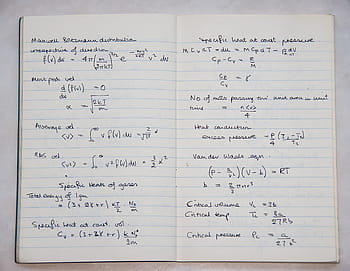 Maxwell Boltzmann distribution
irrespective of direction
f(v) dv = 4π (m/2πkT)^3/2 e^-mv²/2kT v² dv
Most prob vel
d/dv (f(v)) = 0
α = √(2kT/m)
Average vel
<v> = ∫₀^∞ v f(v) dv = 2/√π α
RMS vel
<v²> = ∫₀^∞ v² f(v) dv = 3/2 α²
Specific heats of gases
Total energy of 1 gm
= (3+2q+r) kT/2 · N₀/m
Specific heat at const. vol
Cv = (3+2q+r) k N₀/2m
Specific heat at const pressure
Cp - Cv = R/M
Cp/Cv = γ
No of mols passing unit area unit
time = n<v>/4
Heat conduction
pressure = P/4
Van der Waals eqn.
(V - b) = RT
Critical volume Vc = 3b
Critical temp Tc = 8a/27Rb
Critical pressure Pc = a/27b²